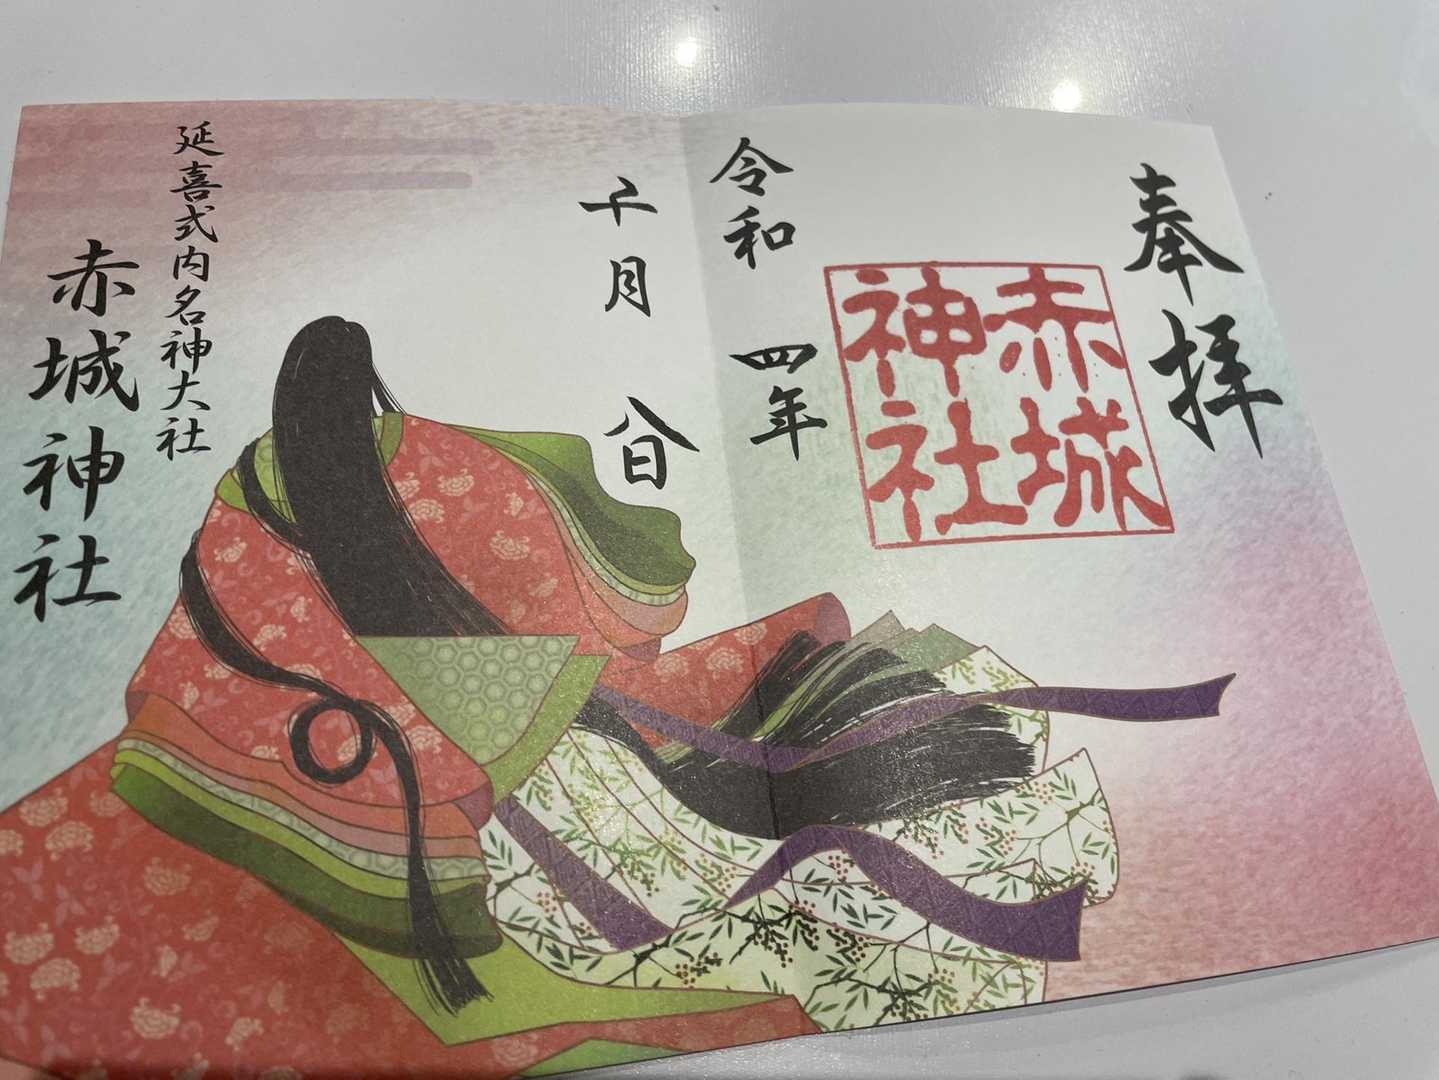 奉拝
赤城
神社
令和 四年
月 八日
延喜式内名神大社
赤城神社